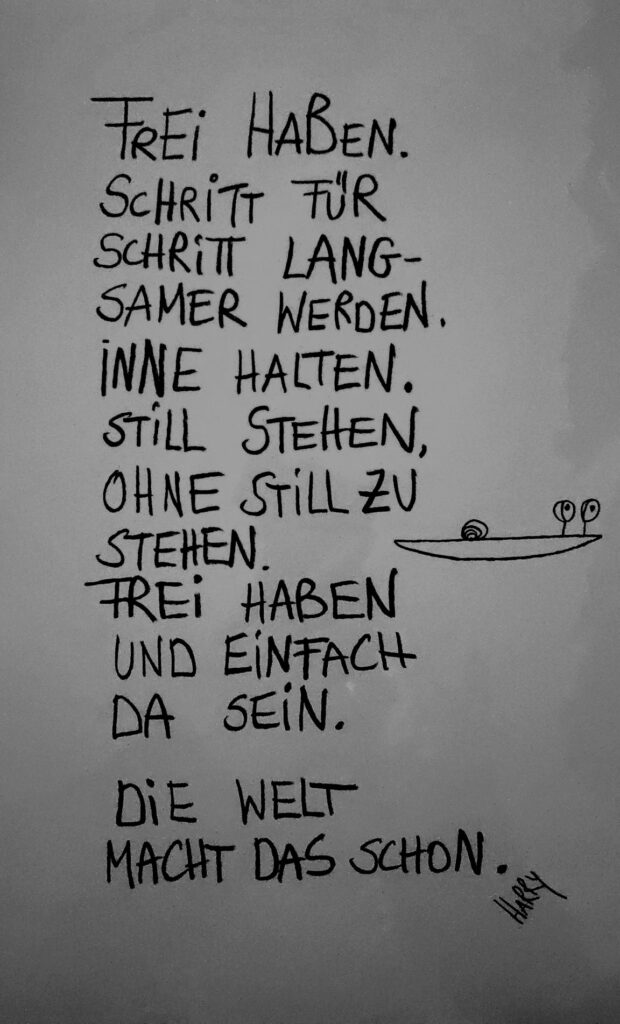 FREi HABEN.
SCHRiTT FÜR
SCHRiTT LANG-
SAMER WERDEN.
iNNE HALTEN.
STiLL STEHEN,
OHNE STiLL ZU
STEHEN.
FREi HABEN
UND EiNFACH
DA SEiN.
DiE WELT
MACHT DAS SCHON.
HARRY